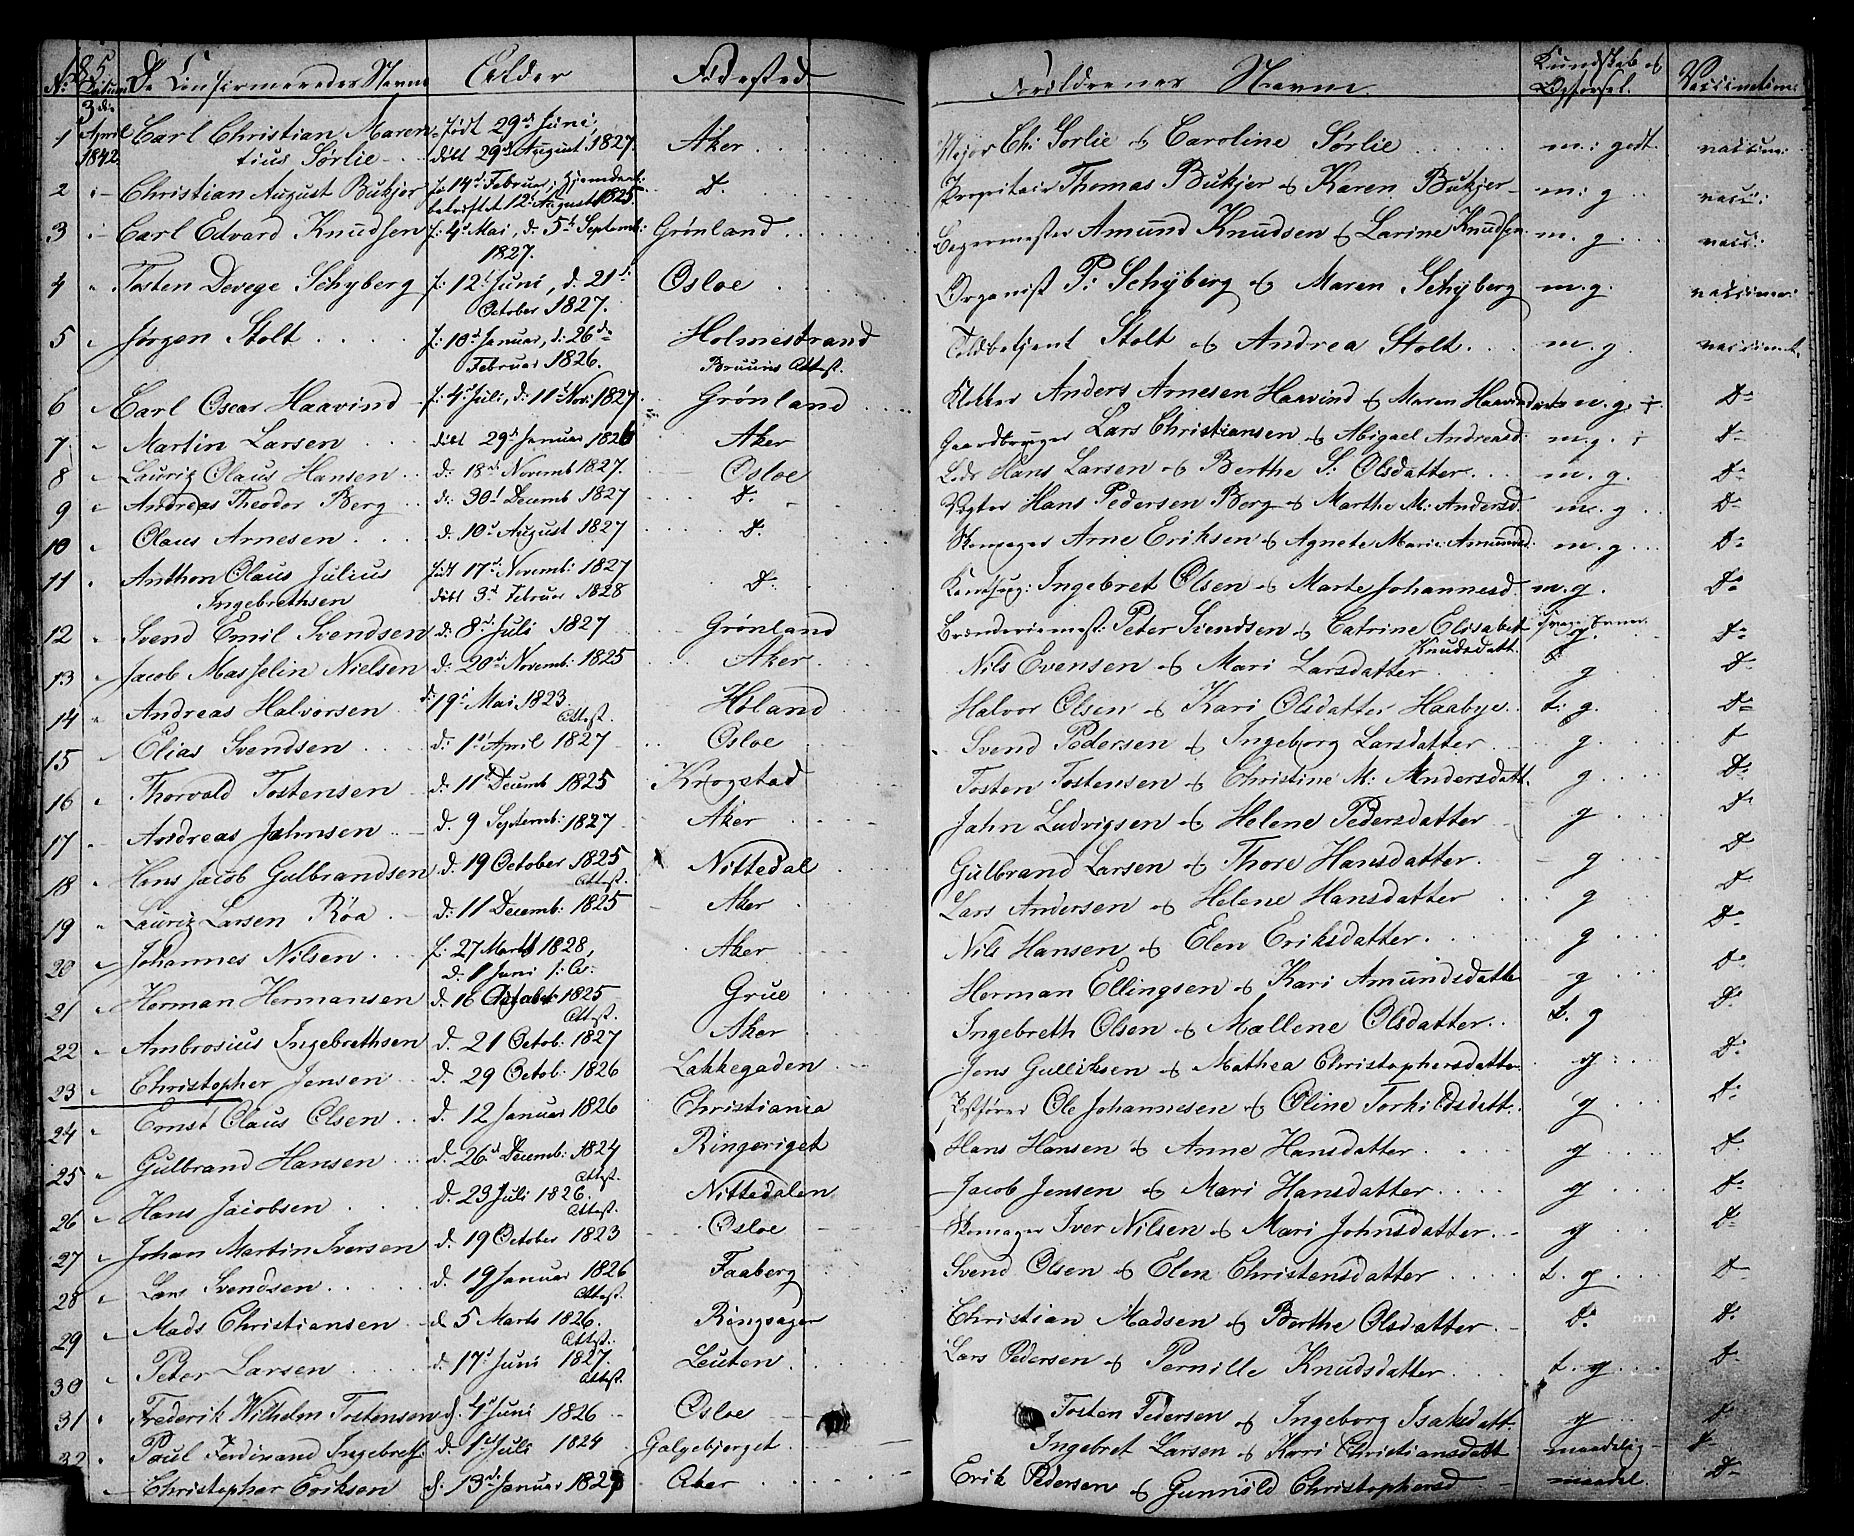 185.
No. Datum De Confirmeredes Navne Alder Fødested Forældrenes Navne Kundskab og Opførsel. Vaccination.
3die April 1842
1 Carl Christian Maren- Født 29de Juni, Aker Major Ch: Sørlie & Caroline Sørlie m: godt. vaccine:
tius Sørlie døbt 29de August, 1827.
2 Christian August Bukjer f. 14de Februar, hjemdøbt D. Thomas Bukjer & Karen Bukjer m: g. vacc:
bekræftet 12 August 1825.
3 Carl Edvard Knudsen f: 4de Mai, d. 5te Septemb: Grønland Bøgermester Amund Knudsen & Larine Knudsen m. g. vacc:
1827.
4 Tosten Devege Schyberg f: 12te Juni, d. 21de Osloe Organist P: Schyberg & Maren Schyberg m.g. vaccine:
October 1827.
5 Jørgen Stolt f: 10de Januar, d: 26de Holmestrand Toldbetjent Stolt & Andrea Stolt m.g. vaccinet.
Februar 1826. Bruuns Attest.
6 Carl Oscar Haavind f: 4de Juli, d. 11te Nov: 1827 Grønland Klokker Anders Arnesen Haavind & Maren Haavind m. g. + Do
7 Martin Larsen døbt 29de Januar 1826 Aker Gaardbruger Lars Christiansen & Abigael Andreasd. m.g. + Do
8 Lauriz Olaus Hansen d: 18de Novemb 1827. Osloe Hans Larsen & Berthe S: Olsdatter m. g. Do
9 Andreas Theodor Berg d: 30te Decemb 1827 D. Vægter Hans Pedersen Berg & Marthe M: Andersd. m. g. Do
10 Olaus Arnesen d: 10de August 1827 D. Skomager Arne Eriksen & Agnete Marie Amundsd. m.g. Do
11 Anthon Olaus Julius født 17de Novemb: 1827 D. Ingebret Olsen & Marte Johannesd. m.g. Do
Ingebrethsen døbt 3de Februar 1828
12 Svend Emil Svendsen d: 8de Juli 1827 Grønland Brænderiemest: Peter Svendsen & Catrine Elisabet g. Do
Knudsdatt.
13 Jacob Masselin Nielsen d: 20de Novemb: 1825 Aker. Nils Evensen & Mari Larsdatter g Do
14 Andreas Halvorsen d. 19de Mai 1823. Høland Halvor Olsen & Kari Olsdatter Haabye t. g. Do
Attest.
15 Elias Svendsen d: 1ste April 1827 Osloe Svend Pedersen & Ingeborg Larsdatter g.
16 Thorvald Tostensen d: 11te Decemb 1825 Krogstad Tosten Tostensen & Christine M: Andersdatt. g Do
17 Andreas Jahnsen d. 9 Septemb: 1827 Aker Jahn Ludvigsen & Helene Pedersdatter g Do
18 Hans Jacob Gulbrandsen d. 19 October 1825 Nittedal Gulbrand Larsen & Thore Hansdatter. g Do
Attest.
19 Lauriz Larsen Røa d: 11 Decemb: 1825 Aker Lars Andersen & Helene Hansdatter g Do
20 Johannes Nilsen f: 27 Marts 1828, Aker Nils Hansen & Elen Eriksdatter g Do
d. 1 Juni
21 Herman Hermansen d: 16 October 1825 Grue Herman Ellingsen & Kari Amundsdatter g Do
Attest.
22 Ambrosius Ingebrethsen d. 21 Octob: 1827 Aker Ingebreth Olsen & Mællene Olsdatter t. g Do
23 Christopher Jensen d. 29 Octob: 1826 Lakkegaden Jens Gulliksen & Mathea Christophersdatter g Do
24 Ernst Olaus Olsen d. 12 Januar 1826 Christiania Ole Johannesen & Oline Torkildsdatt. g Do
25 Gulbrand Hansen d. 26de Decemb: 1824 Ringeriget Hans Hansen & Anne Hansdatter g Do
Attest.
26 Hans Jacobsen d. 23 Juli 1826. Nittedalen Jacob Jensen & Mari Hansdatter g Do
Attest.
27 Johan Martin Iversen d. 19 October 1823 Osloe Skomager Iver Nilsen & Mari Johnsdatter. g Do
28 Lars Svendsen d. 19 Januar 1826 Faaberg Svend Olsen & Elen Christensdatter t. g Do
Attest.
29 Mads Christiansen d 5 Marts 1826. Ringsager Christian Madsen & Berthe Olsdatter t. Do
Attest.
30 Peter Larsen d: 17de Juni 1827. Leuten Lars Pedersen & Pernille Knudsdatter t. g Do
Attest.
31 Frederik Wilhelm Tostensen d. 4de Juni 1826 Osloe Tosten Pedersen & Ingeborg Isaksdatt. g Do
32 Paul Ferdinand Ingebreths. d. 1ste Juli 1824 Galgebjerget Ingebret Larsen & Kari Christiansdatt maadelig Do
Christopher Eriksen d. 13de Januar 182 Aker Erik Pedersen & Gunnild Christophersd maadel. Do